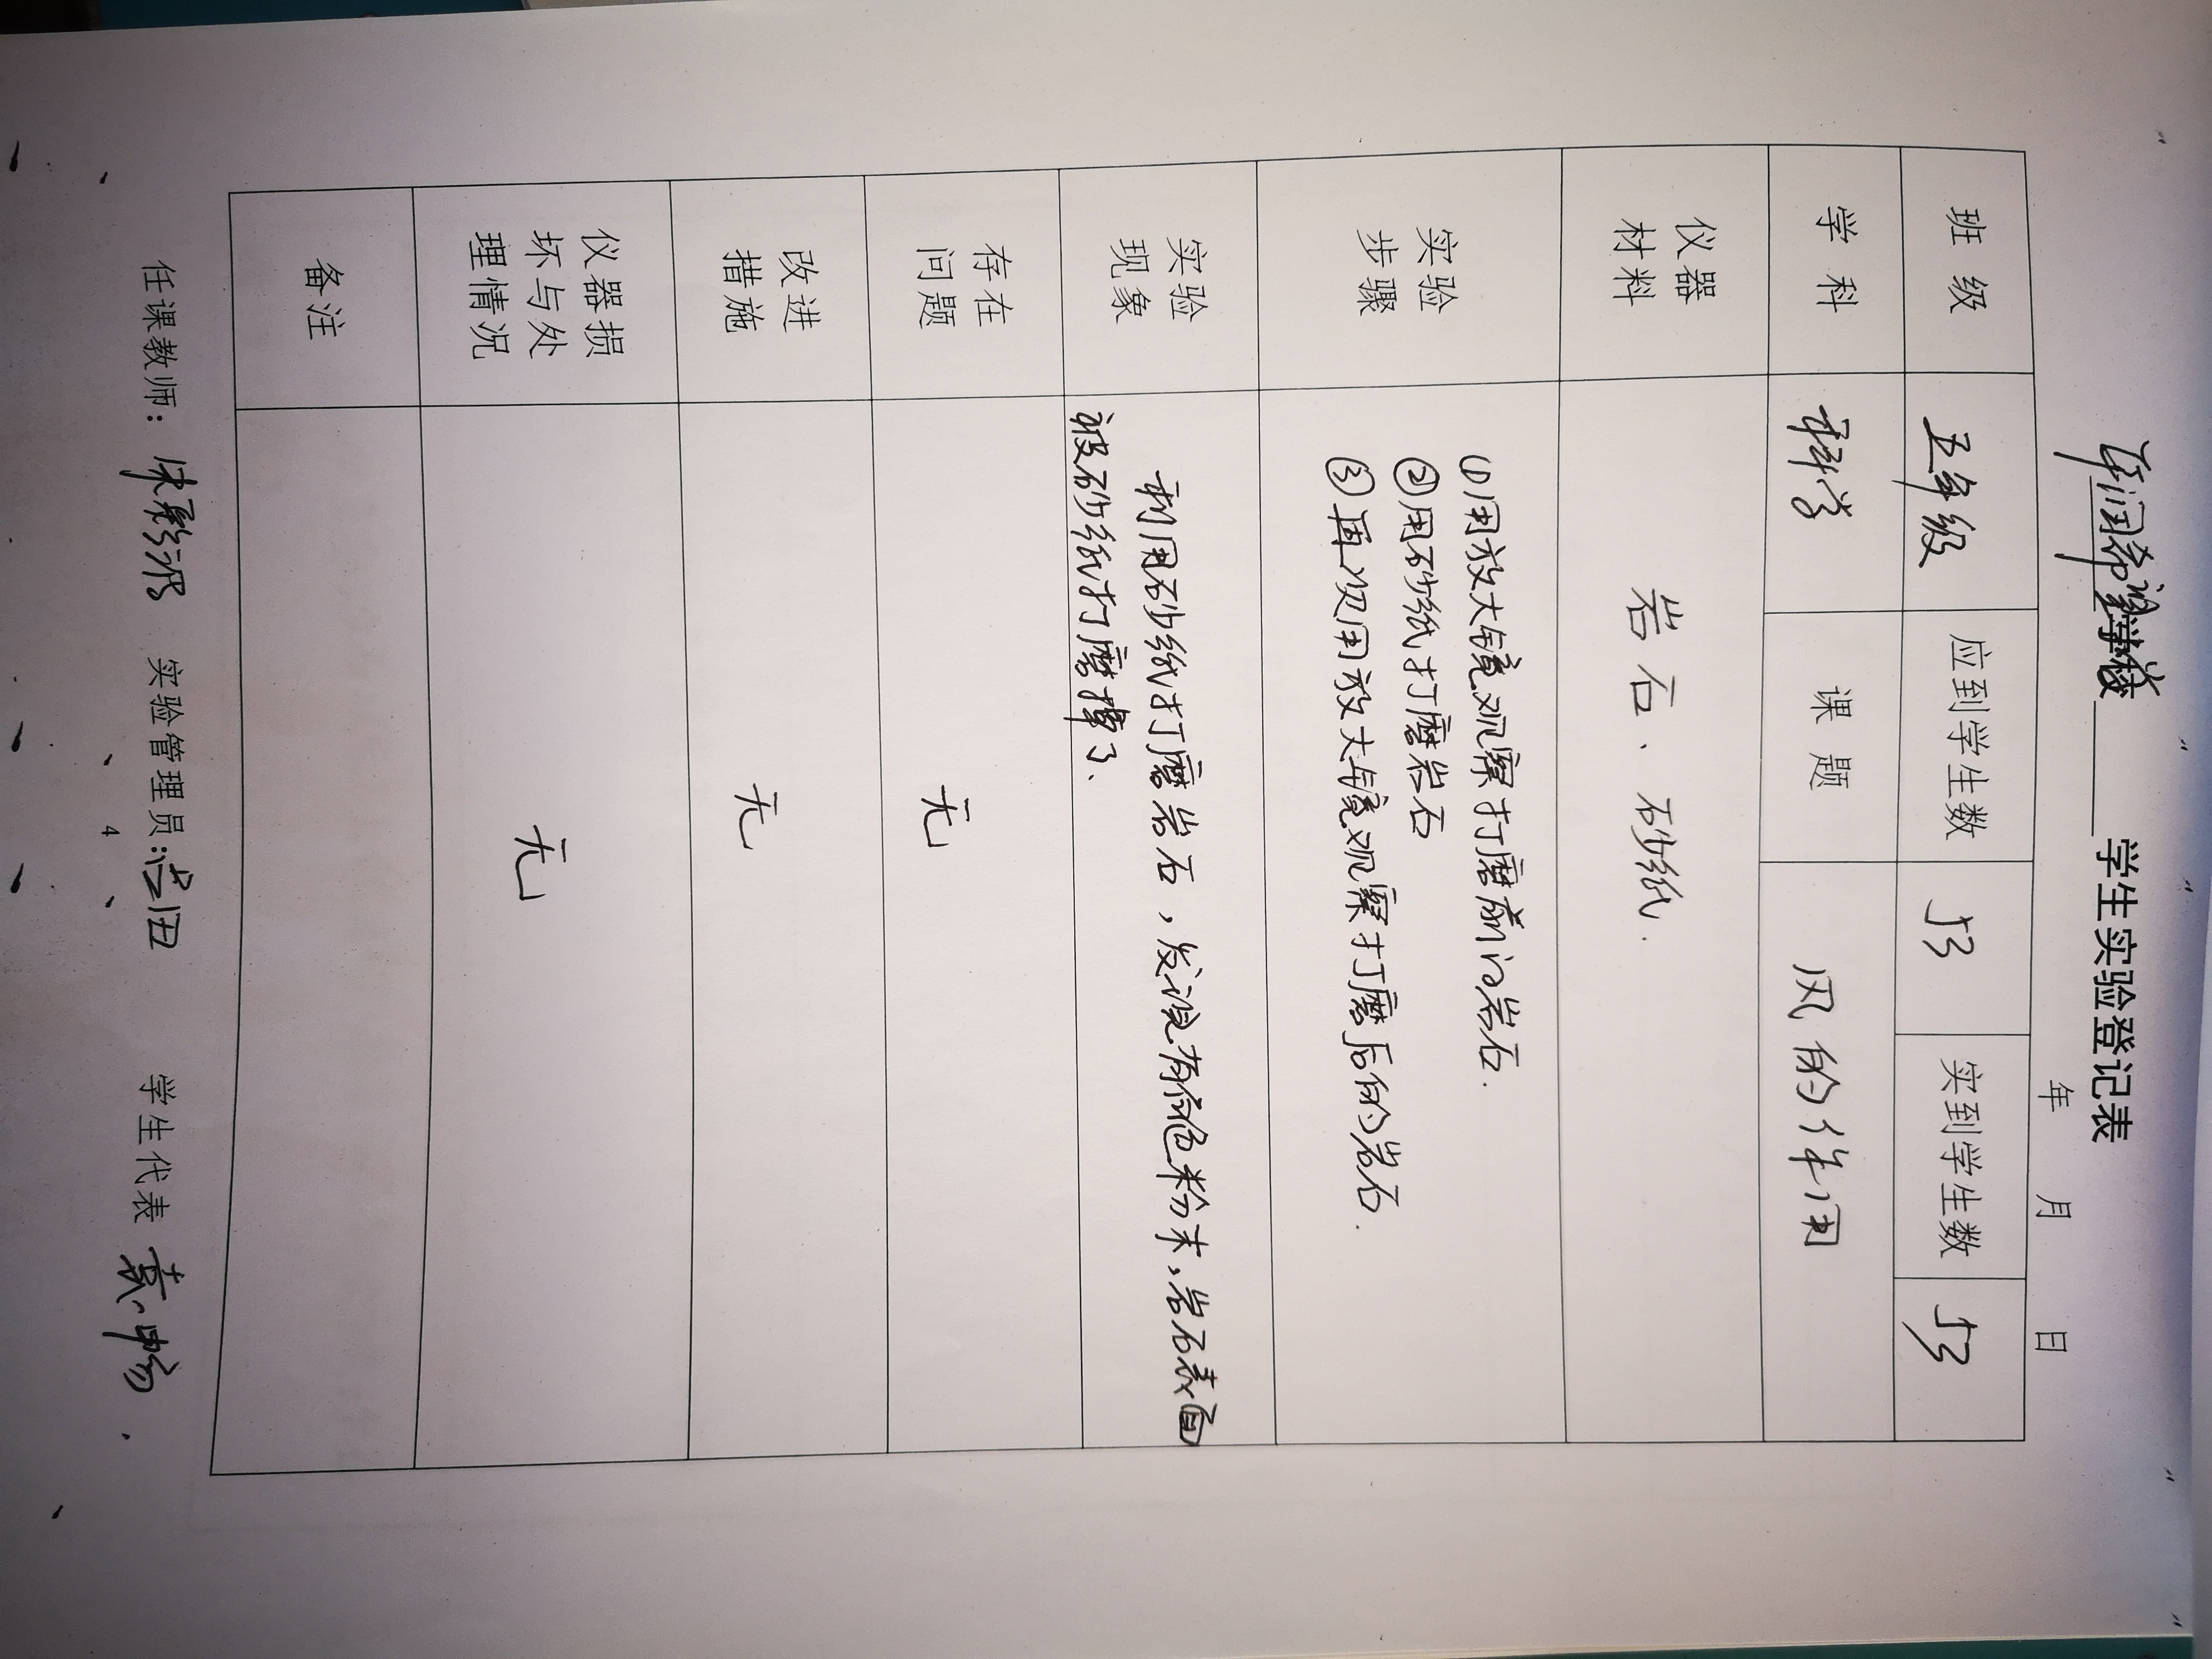 学生实验登记表
年 月 日
班级 五年级 应到学生数 53 实到学生数 53
学科 科学 课题 风的作用
仪器
材料
岩石、砂纸.
实验
步骤
①用放大镜观察打磨前的岩石.
②用砂纸打磨岩石
③再次用放大镜观察打磨后的岩石.
实验
现象
利用砂纸打磨岩石，发现有白色粉末,岩石表面
被砂纸打磨掉了、
存在
问题
无
改进
措施
无
仪器损
坏与处
理情况
无
备注
任课教师： 实验管理员: 学生代表 袁畅
4